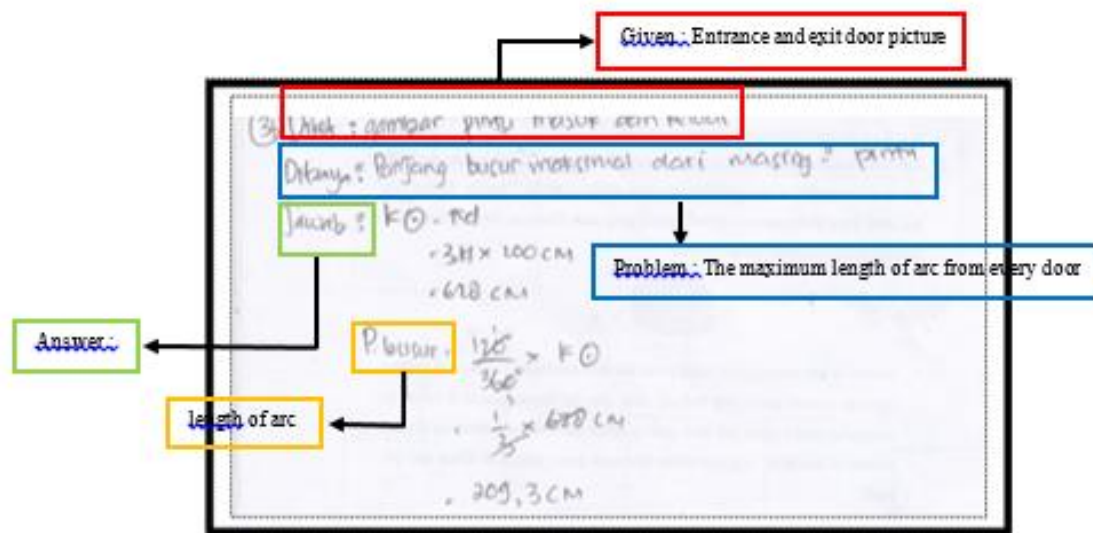 Given : Entrance and exit door picture
(3) Diket : gambar pintu masuk dan keluar
Ditanya : Panjang busur maksimal dari masing" pintu
Jawab : K⊙ = πd
= 3,14 × 200 cm
= 628 cm
Problem : The maximum length of arc from every door
Answer :
P. busur = 120°/360° × K⊙
length of arc
= 1/3 × 628 cm
= 209,3 cm